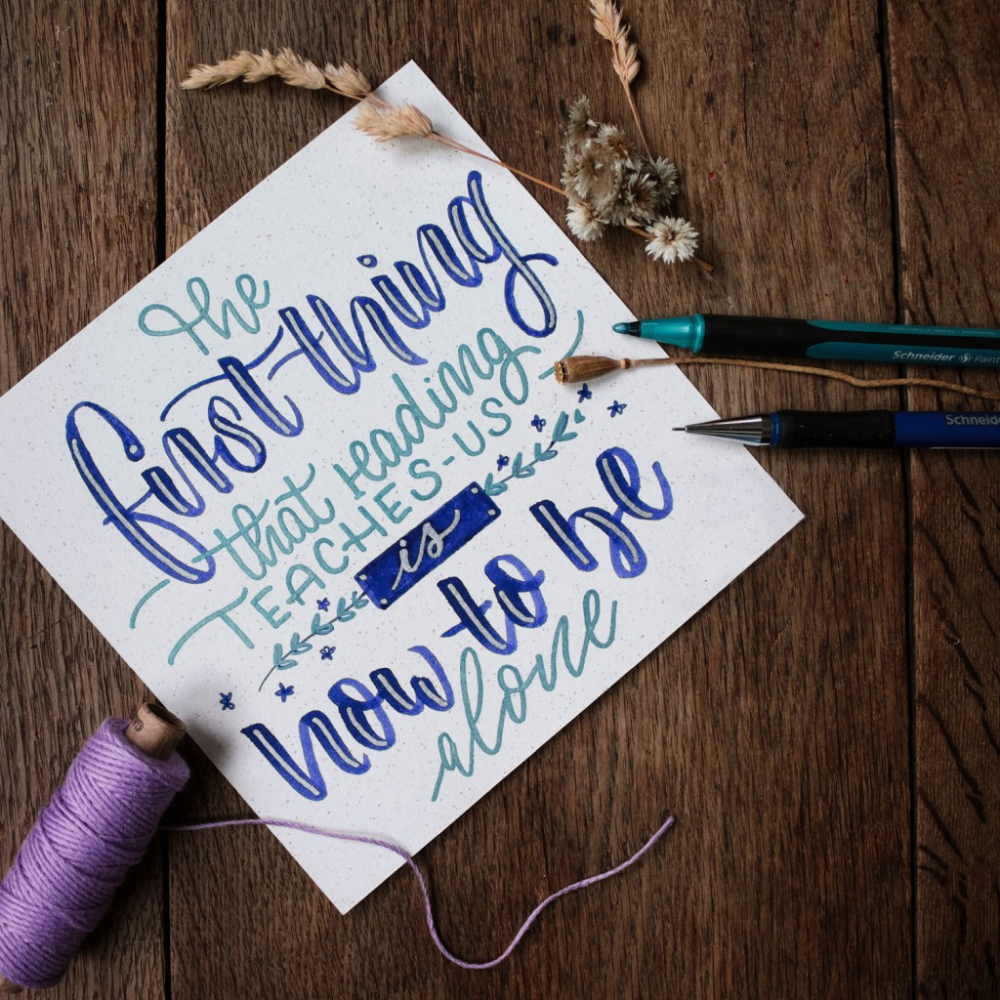 the
first thing
that reading
TEACHES-US
is
how to be
alone
Schneider
Schneider